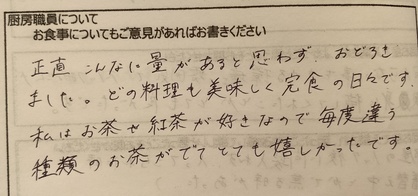 厨房職員について
お食事についてもご意見があればお書きください
正直こんなに量があると思わず、おどろき
ました。どの料理も美味しく完食の日々です。
私はお茶や紅茶が好きなので毎度違う
種類のお茶がでてとても嬉しかったです。